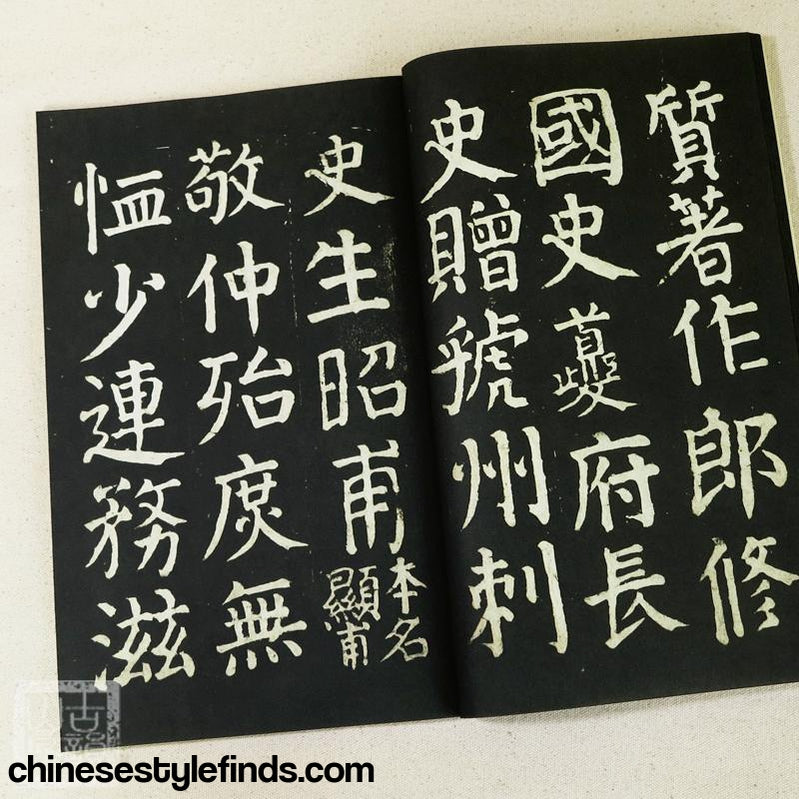 質著作郎修
國史夔府長
史贈虢州刺
史生昭甫本名顯甫
敬仲殆庶無
恤少連務滋
chinesestylefinds.com